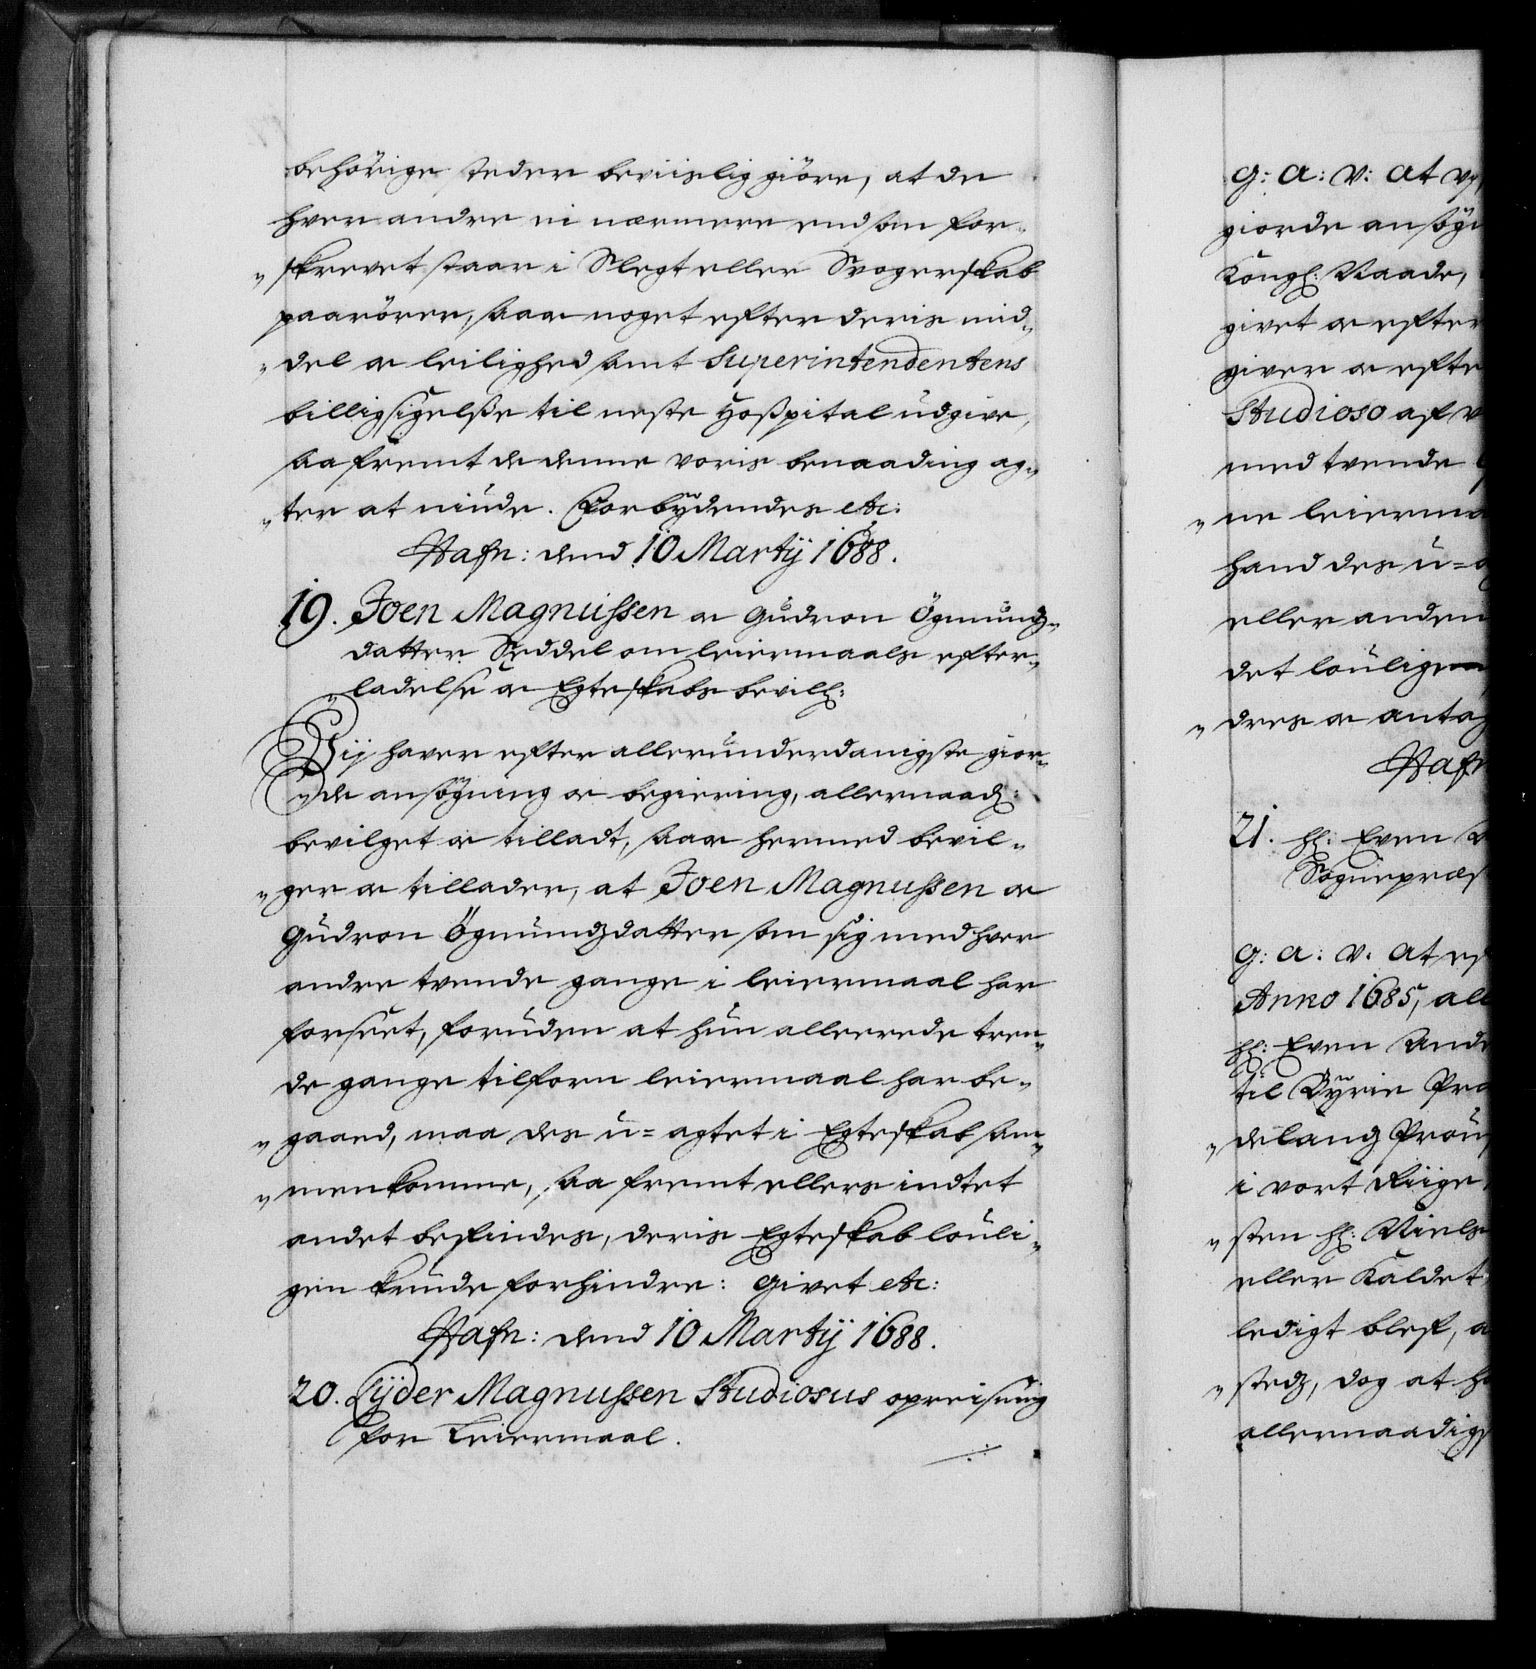 behörige steder beviislig giöre, at de
hver andre ei nærmere end som for-
"skrevet staar i Slegt eller Svogerskab
paarörer, saa og noget efter deris mid-
"del og leilighed samt Superintendentens
billigsigelße til neste Hoßpital udgive,
saa fremt de denne voris benaading ag-
"ter at niude. Forbydendes etc:
Hafn: dend 10 Martij 1688.
19. Joen Magnussen og Gudron Ögmundz-
datter Seddel om leiermaals efter-
"ladelse og Egteskabs bevill:
Vij haver efter allerunderdanigste gior-
"de ansögning og begiering, allernaad:
bevilget og tilladt, saa og hermed bevil-
"ger og tillader, at Joen Magnussen og
Gudron Ögmundzdatter som sig med hver
andre tvende gange i leiermaal har
forseet, foruden at hun allerede tren-
de gange tilforn leiermaal har be-
"gaaed, maa des u-agtet i Egteskab sam-
"menkomme, saa fremt ellers indtet
andet befindes, deris Egteskab louli-
gen kunde forhindre: Givet etc:
Hafn: dend 10 Martij 1688.
20. Lyder Magnussen Studiosus opreisning
for Leiermaal.
g: a: v: at v
giorde ansög
Kongl: Naade,
givet og efter
giver og efte
Studioso af
med tvende
"ne leierma
hand des u-
eller anden
det louligen
"dres og antag
Hafn
21. Hl: Even
Sognepræs
g: a: v: at ef
Anno 1685, all
Hl: Even Ande
til Pro
"delandz Prou
i vort Riige
"sten Hl: Niels
eller Kaldet
ledigt blef, a
"stedz, dog at h
allernaadigs